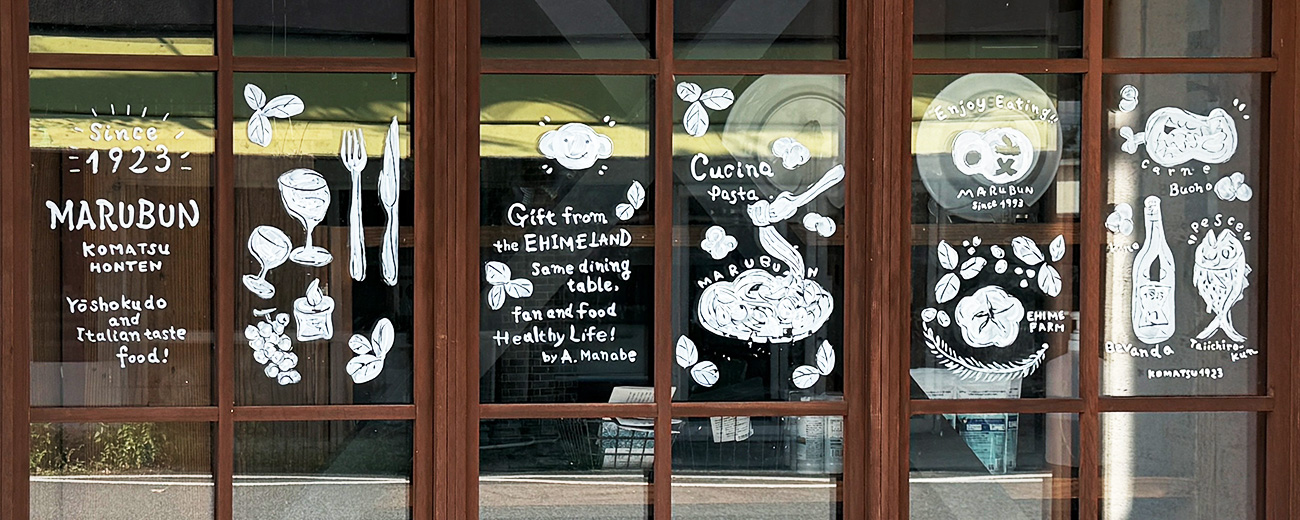 Since
1923
MARUBUN
KOMATSU
HONTEN
Yōshokudo
and
Italian taste
food!
Gift from
the EHIMELAND
Same dining
table,
fan and food
Healthy Life!
by A. Manabe
Cucina
Pasta
MARUBUN
Enjoy Eating!!
MARUBUN
Since 1993
EHIME
FARM
Carne
Buono
Pesce
Bevanda
Taiichiro-
Kun
KOMATSU 1923